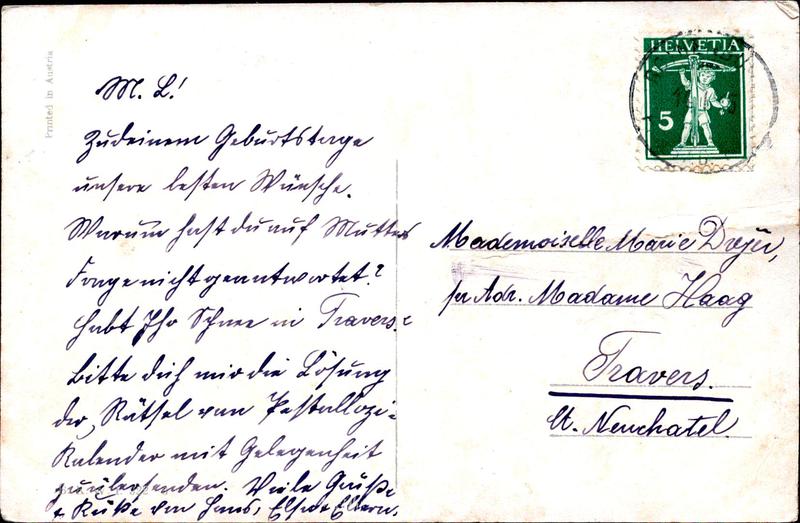 Printed in Austria
M. L!
Zu deinem Geburtstage
unsere besten Wünsche.
Warum hast du auf Mutters
Frage nicht geantwortet?
Habt Ihr Schnee in Travers?
Bitte dich mir die Lösung
der Rätsel vom Pestallozi-
Kalender mit Gelegenheit
zu übersenden. Viele Grüße
+ Küße von Hans, Else + Eltern.
HELVETIA
5
Mademoiselle Marie Dreyer,
per Adr. Madame Haag
Travers.
Ct. Neuchatel.